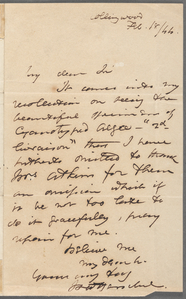 Collingwood
Feb. 18/44
My dear Sir
It comes into my
recollection on seeing the
beautiful specimen of
Cyanotyped Algae - "2d
livraison" that I have
hitherto omitted to thank
Mrs Atkins for them
an omission which if
it be not too late to
do it gracefully, pray
repair for me.
Believe me
my dear Sir
Yours very truly